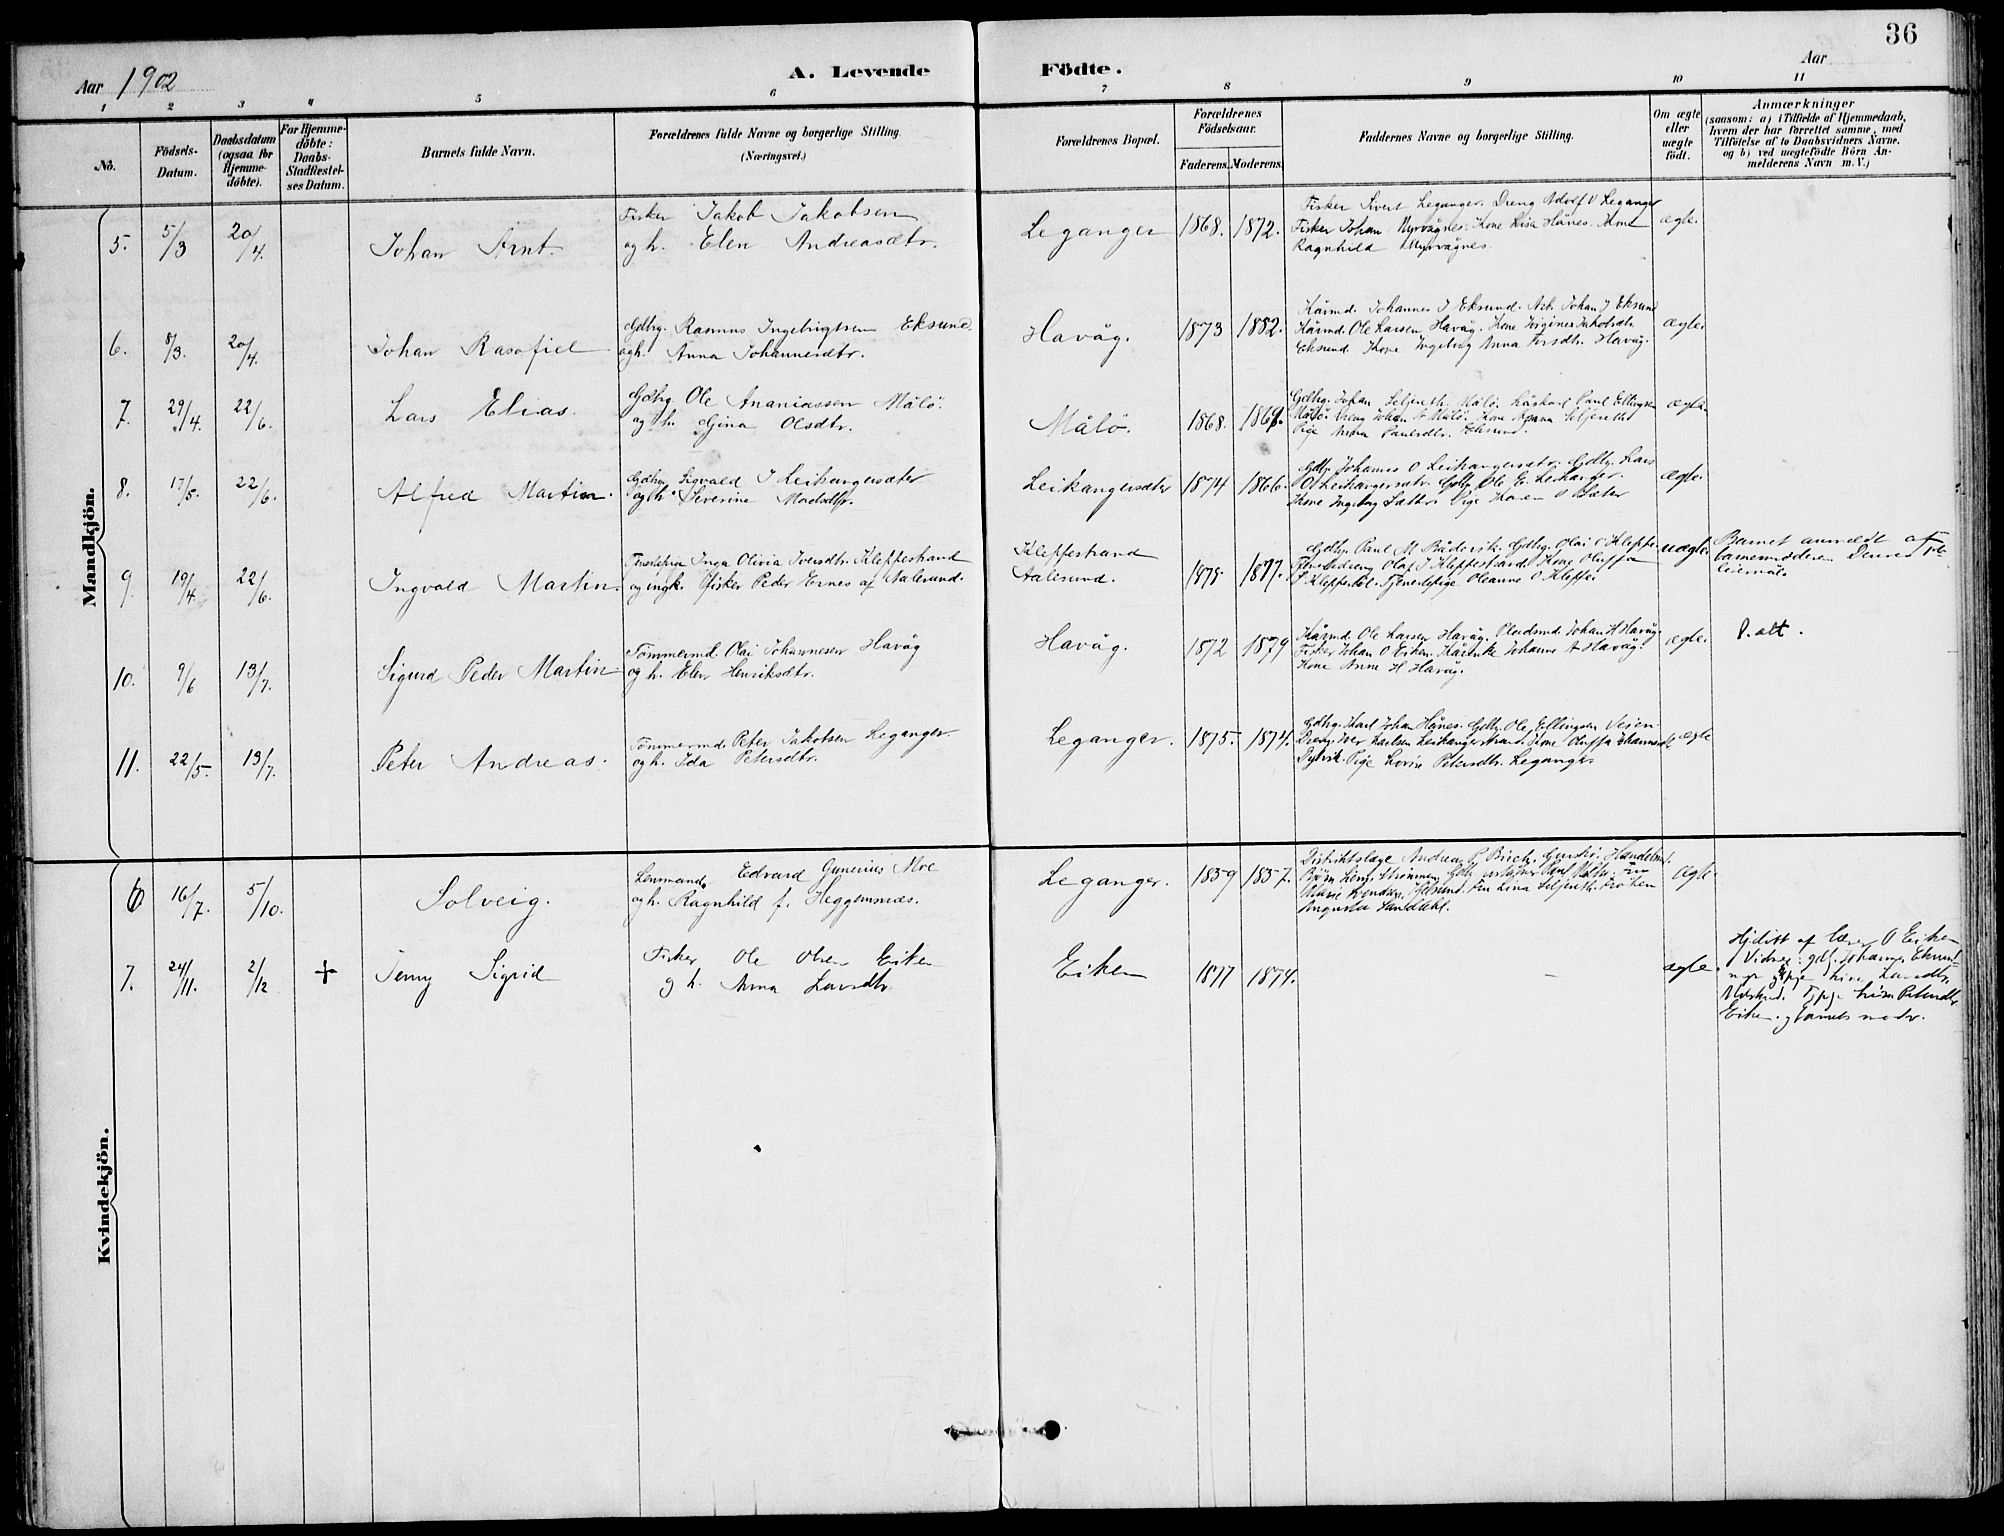 36
Aar 1902
A. Levende
Födte.
Aar
1 2 3 4 5 6 7 8 9 10 11
No.
Födsels-
Datum.
Daabsdatum
(ogsaa for
Hjemme-
döbte).
For Hjemme-
döbte:
Daabs-
Stadfæstel-
ses Datum.
Barnets fulde Navn.
Forældrenes fulde Navne og borgerlige Stilling.
(Næringsvei.)
Forældrenes Bopæl.
Forældrenes
Födselsaar.
Faderens. Moderens.
Faddernes Navne og borgerlige Stilling.
Om ægte
eller
uægte
födt.
Anmærkninger
(saasom: a) i Tilfælde af Hjemmedaab,
hvem der har forrettet samme, med
Tilföielse af to Daabsvidners Navne,
og b) ved uægtefödte Börn An-
melderens Navn m. V.)
Mandkjön.
5. 5/3 20/4. Johan Arnt.
Fisker Jakob Jakobsen
og h. Elen Andreasdtr.
Leganger 1868. 1872.
Fisker Sivert Leganger. Dreng Adolf O Leganger
Fisker Johan Myrvågnes. Kone Lisa Hånes. Kone
Ragnhild Myrvågnes.
ægte.
6. 8/3. 20/4. Johan Rasofiel
Gdbrg. Rasmus Ingebrigtsen Eksund.
og h. Anna Johannesdtr.
Havåg. 1873 1882.
Kårmd. Johannes J Eksund. Arb. Johan J Eksund
Kårmd. Ole Larsen Havåg. Kone Jörgine Jakobsdtr.
Eksund. Kone Ingeborg Anna Iversdtr. Havåg.
ægte.
7. 29/4. 22/6. Lars Elias.
Gdbrg. Ole Ananiassen Målö.
og h. Gina Olsdtr.
Målö. 1868. 1869.
Gdbrg. Johan Seljeseth Målö. Paul Ellingsen
Målö. Dreng Johan Målö. Kone Anna Seljeseth
Pige Anna Paulsdtr. Eksund.
ægte.
8. 17/5. 22/6. Alfred Martin.
Gdbrg. Sigvald J Leikangersæter
og h. Severine Madsdtr.
Leikangersæter 1874 1866.
Gdbr. Johannes O Leikangersætr. Gdbr. Lars
O Leikangersætr. Gdbr. Ole E. Leikanger.
Kone Ingeborg Sætter. Pige Karen O Sæter
ægte.
9. 19/4. 22/6. Ingvald Martin.
Inga Olivia Iversdtr. Kleppestrand
og ungk. fisker Peder Ernes af Aalesund.
Kleppestrand
Aalesund. 1878 1877.
Gdbr. Paul M Bådsvik. Gdbrg. Olai O Kleppe
Olaf J Kleppestrand. Kone Oluffa
J Kleppestol. Tjenestepige Oleanne O. Kleppe.
uægte.
Barnet anmeldt af
barnemoderen. Dennes 1ste
leiermål.
10. 9/6 13/7. Sigurd Peder Martin
Tömmermd. Olai Johannesen Havåg
og h. Elen Henriksdtr.
Havåg. 1872 1879
Kårmd. Ole Larsen Havåg. Johan H Havåg.
Fisker Johan O Eiken. Kårenke Johanne A Havåg.
Kone Anne H Havåg.
ægte.
P. att.
11. 22/5. 13/7. Peter Andreas.
Tömmermd. Peter Jakobsen Leganger
og h. Ida Petersdtr.
Leganger. 1875. 1874.
Gdbrg. Karl Johan Hånes. Gdbr. Ole Ellingsen Veien
Dreng Iver Karlsen Leikangerstrand. Kone Oluffa Johannesdtr.
Djupvik. Pige Lovise Petersdtr. Leganger
ægte
Kvindekjön.
6 16/7. 5/10. Solveig.
Lensmand Edvard Gunerius Moe
og h. Ragnhild f. Heggemnæs.
Leganger. 1859 1857.
Distriktslæge Andreas P Birch. Gurskö. Handelsmd.
Björn Strömmen.
Lina Seljeseth. Fröken
Augusta Sandahl.
ægte.
7. 24/11. 2/12 + Jenny Sigrid
Fisker Ole Olsen Eiken
og h. Anna Larsdtr.
Eiken 1877 1874.
–
ægte.
Hjdöbt af lærer O Eiken
Vidner: gdbr. Johannes Eksund
og pige Line Larsdtr.
pige Lisa Petersdtr
Eiken. og barnets moder.